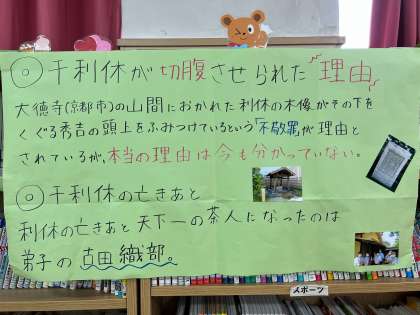 ◎千利休が切腹させられた"理由"
大徳寺(京都市)の山間におかれた利休の木像がその下を
くぐる秀吉の頭上をふみつけているという「不敬罪」が理由と
されているが、本当の理由は今も分かっていない。
◎千利休の亡きあと
利休の亡きあと天下一の茶人になったのは
弟子の古田織部。
スポーツ